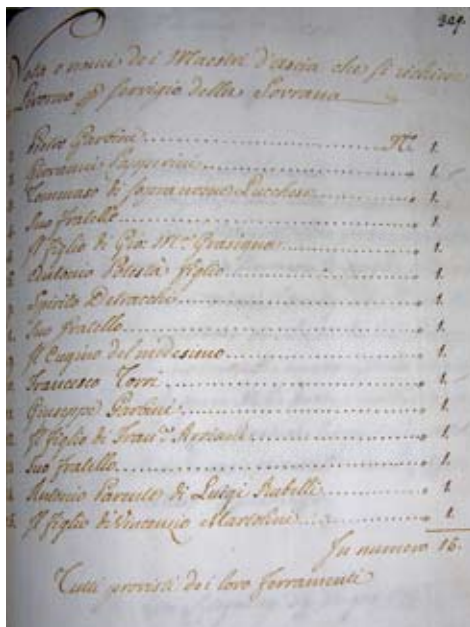 329.
Nota e nomi dei Maestri d'ascia che si richied
Livorno p servizio della Sovrana
Pietro Gardini N. 1.
Giovanni Gasperini 1.
Tommaso di Lucchesi 1.
Suo fratello 1.
Il figlio di Gio: Mᵃ Grasigna 1.
Antonio Podestà figlio 1.
Spirito 1.
Suo fratello 1.
Il Cugino del medesimo 1.
Francesco Torri 1.
Giuseppe Gardini 1.
Il figlio di Franᶜᵒ 1.
Suo fratello 1.
Antonio di Luigi Rabelli 1.
Il figlio di Vincenzio Martolini 1.
In numero 15.
Tutti provisti dei loro ferramenti